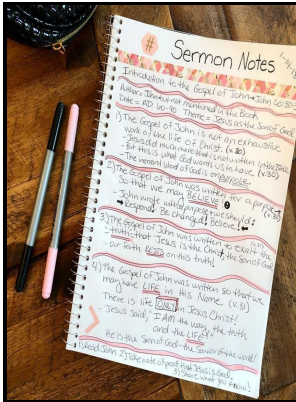 #
Sermon Notes
Introduction to the Gospel of John - John 20:30-31
Author = John - but not mentioned in the Book
Date = AD 60-90 Theme = Jesus as the Son of God
1) The Gospel of John is not an exhaustive
work of the life of Christ. (v. 30)
- Jesus did much more that is not written in the Bible
- But this is what God wants us to have. (v. 30)
- The inerrant Word of God is on purpose.
2) The Gospel of John was written for a purpose -
So that we may BELIEVE!
John wrote with purpose + we should:
Respond! Be changed! Believe!
3) The Gospel of John was written to exalt the
truth: that Jesus is the Christ, the Son of God
- our faith on this truth!
4) The Gospel of John was written so that we
may have LIFE in His Name. (v. 31)
There is life ONLY in Jesus Christ!
Jesus said, "I AM the way, the truth
and the LIFE."
He is the Son of God - the Savior of the world!
1) Read John 2) Take note of proof that Jesus is God
3) Share what you know!